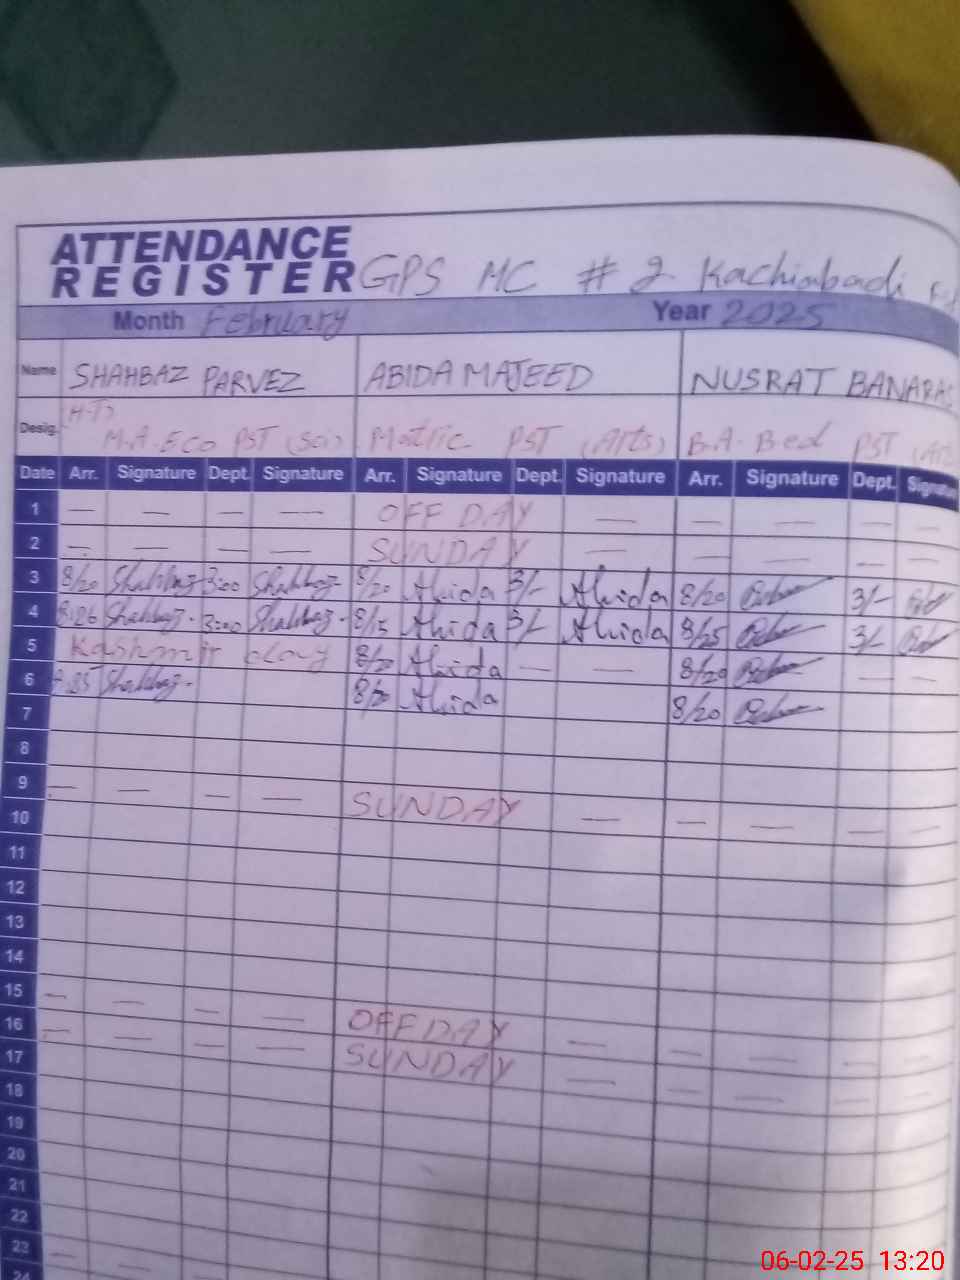 ATTENDANCE
REGISTER GPS MC # 2 Kachiabadi
Month February Year 2025
Name SHAHBAZ PARVEZ ABIDA MAJEED NUSRAT BANARAS
Desig. (H-T) M.A-Eco PST (Sci) Matric PST (Arts) B.A-Bed PST
Date Arr. Signature Dept. Signature Arr. Signature Dept. Signature Arr. Signature Dept. Signature
1 — — — — OFF DAY — — — — —
2 — — — — SUNDAY — — — — —
3 8/20 Shahbaz 3:00 Shahbaz 8/20 Abida 3/- Abida 8/20 3/-
4 8:26 Shahbaz 3:00 Shahbaz 8/15 Abida 3/- Abida 8/25 3/-
5 Kashmir day 8/20 Abida — — 8/20 — —
6 Shahbaz 8/20 Abida 8/20
7
8
9 — — — — SUNDAY — — — — —
10
11
12
13
14
15 — — — — OFF DAY — — — — —
16 — — — — SUNDAY — — — — —
17
18
19
20
21
22
23 —
24
06-02-25 13:20